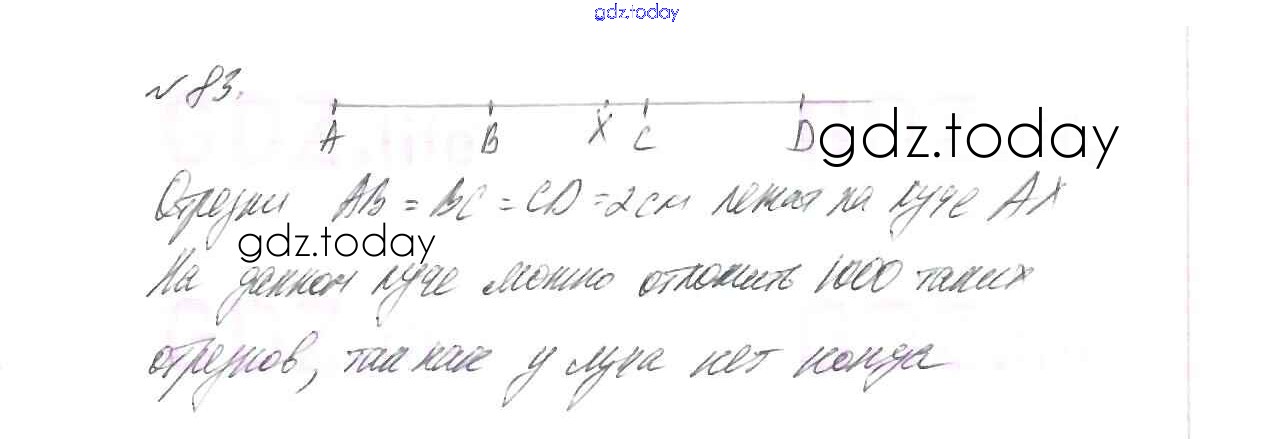 gdz.today
№ 83.
A B X C D gdz.today
Отрезки AB = BC = CD = 2 см лежат на луче AX
gdz.today
На данном луче можно отложить 1000 таких
отрезков, так как у луча нет конца